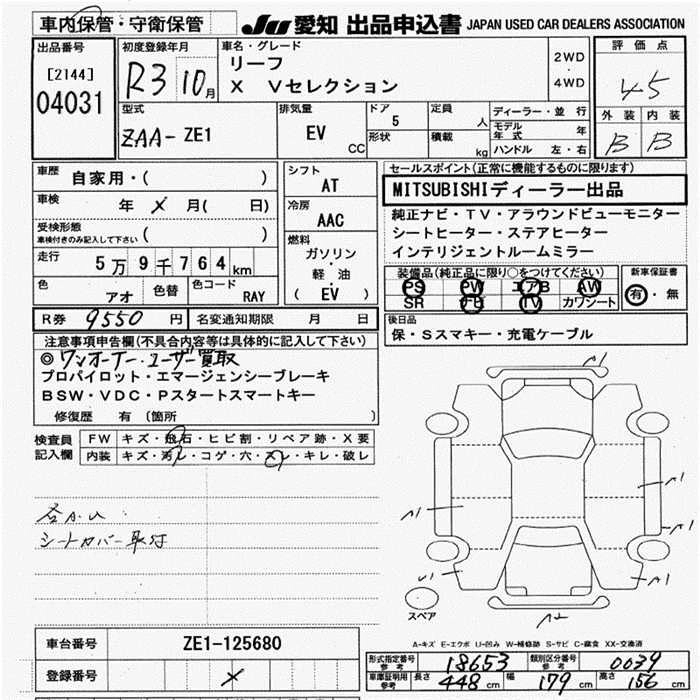 車内保管・守衛保管
JU 愛知 出品申込書 JAPAN USED CAR DEALERS ASSOCIATION
出品番号
[2144]
04031
初度登録年月
R3 10月
車名・グレード
リーフ
X Vセレクション
2WD
・
4WD
評価点
4.5
外装 内装
B B
型式
ZAA- ZE1
排気量
EV
CC
ドア
5
形状
定員
人
積載
kg
ディーラー・並行
モデル年式 年
ハンドル 左・右
車歴
自家用・( )
車検
年 × 月( 日)
受検形態
車検付きのみ記入して下さい ( )
走行
5万9千764km
色
アオ
色替
色コード
RAY
シフト
AT
冷房
AAC
燃料
ガソリン
・
軽油
・
( EV )
セールスポイント(正常に機能するものに限ります)
MITSUBISHIディーラー出品
純正ナビ・TV・アラウンドビューモニター
シートヒーター・ステアヒーター
インテリジェントルームミラー
装備品(純正品に限り○をつけてください)
PS PW エアB AW
SR ナビ TV カワシート
新車保証書
有・無
後日品
保・Sスマキー・充電ケーブル
R券 9550 円
名変通知期限 月 日
注意事項申告欄(不具合内容等は具体的に記入して下さい)
◎ワンオーナー・ユーザー買取
プロパイロット・エマージェンシーブレーキ
BSW・VDC・Pスタートスマートキー
修復歴 有 〔箇所 〕
検査員記入欄
FW キズ・飛石・ヒビ割・リペア跡・X要
内装 キズ・汚レ・コゲ・穴・スレ・キレ・破レ
シートカバー取付
A1
A1
A1
A1
A1
A2
スペア
A-キズ E-エクボ U-凹み W-補修跡 S-サビ C-腐食 XX-交換済
車台番号
ZE1-125680
登録番号
×
形式指定番号
参考
18653
類別区分番号
参考
0039
車庫証明用
参考
長さ 448 cm 幅 179 cm 高さ 156 cm